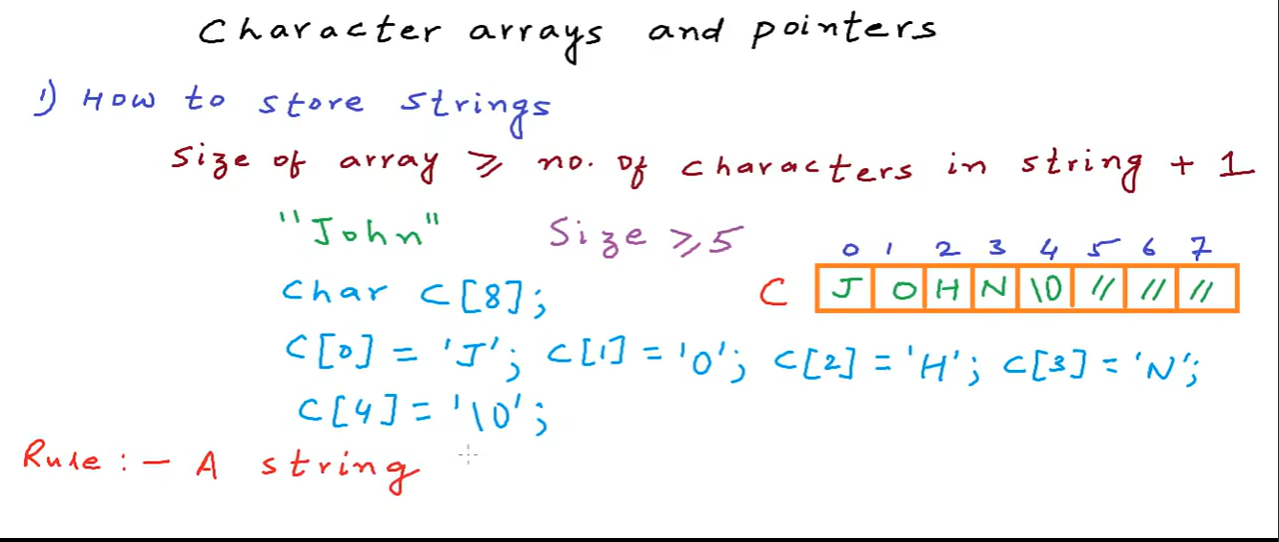 Character arrays and pointers
1) How to store strings
Size of array ≥ no. of characters in string + 1
"John" Size ≥ 5
0 1 2 3 4 5 6 7
char C[8]; C J O H N \0 // // //
C[0] = 'J'; C[1] = 'O'; C[2] = 'H'; C[3] = 'N';
C[4] = '\0';
Rule :- A string